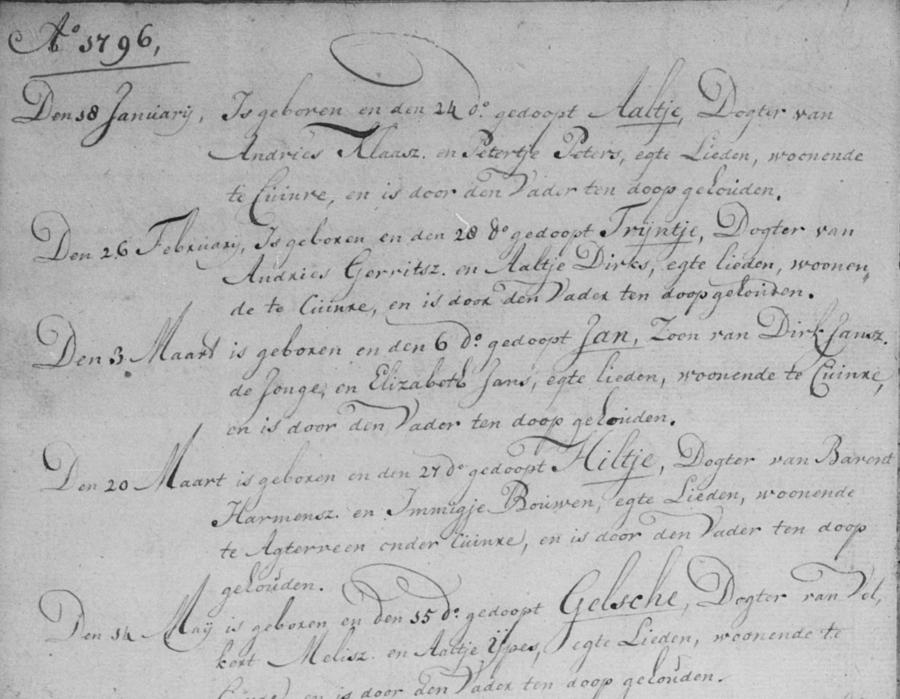 Aº 1796,
Den 18 Januarij, Is geboren en den 24 dº gedoopt Aaltje, Dogter van
Andries Klaasz. en Petertje Peters, egte Lieden, woonende
te Cuinre, en is door den Vader ten doop gehouden.
Den 26 Februarij, Is geboren en den 28 dº gedoopt Trijntje, Dogter van
Andries Gerritsz. en Aaltje Dirks, egte lieden, woonen„
de te Cuinre, en is door den Vader ten doop gehouden.
Den 3 Maart is geboren en den 6 dº gedoopt Jan, Zoon van Dirk Jansz.
de Jonge, en Elizabeth Jans, egte lieden, woonende te Cuinre,
en is door den Vader ten doop gehouden.
Den 20 Maart is geboren en den 27 dº gedoopt Hiltje, Dogter van Barent
Harmensz. en Immigje Bouwen, egte Lieden, woonende
te Agterveen onder Cuinre, en is door den Vader ten doop
gehouden.
Den 14 Maij is geboren en den 15 dº gedoopt Gelsche, Dogter van Vol,
kert Melisz. en Aaltje Ypes, egte Lieden, woonende te
Cuinre en is door den Vader ten doop gehouden.